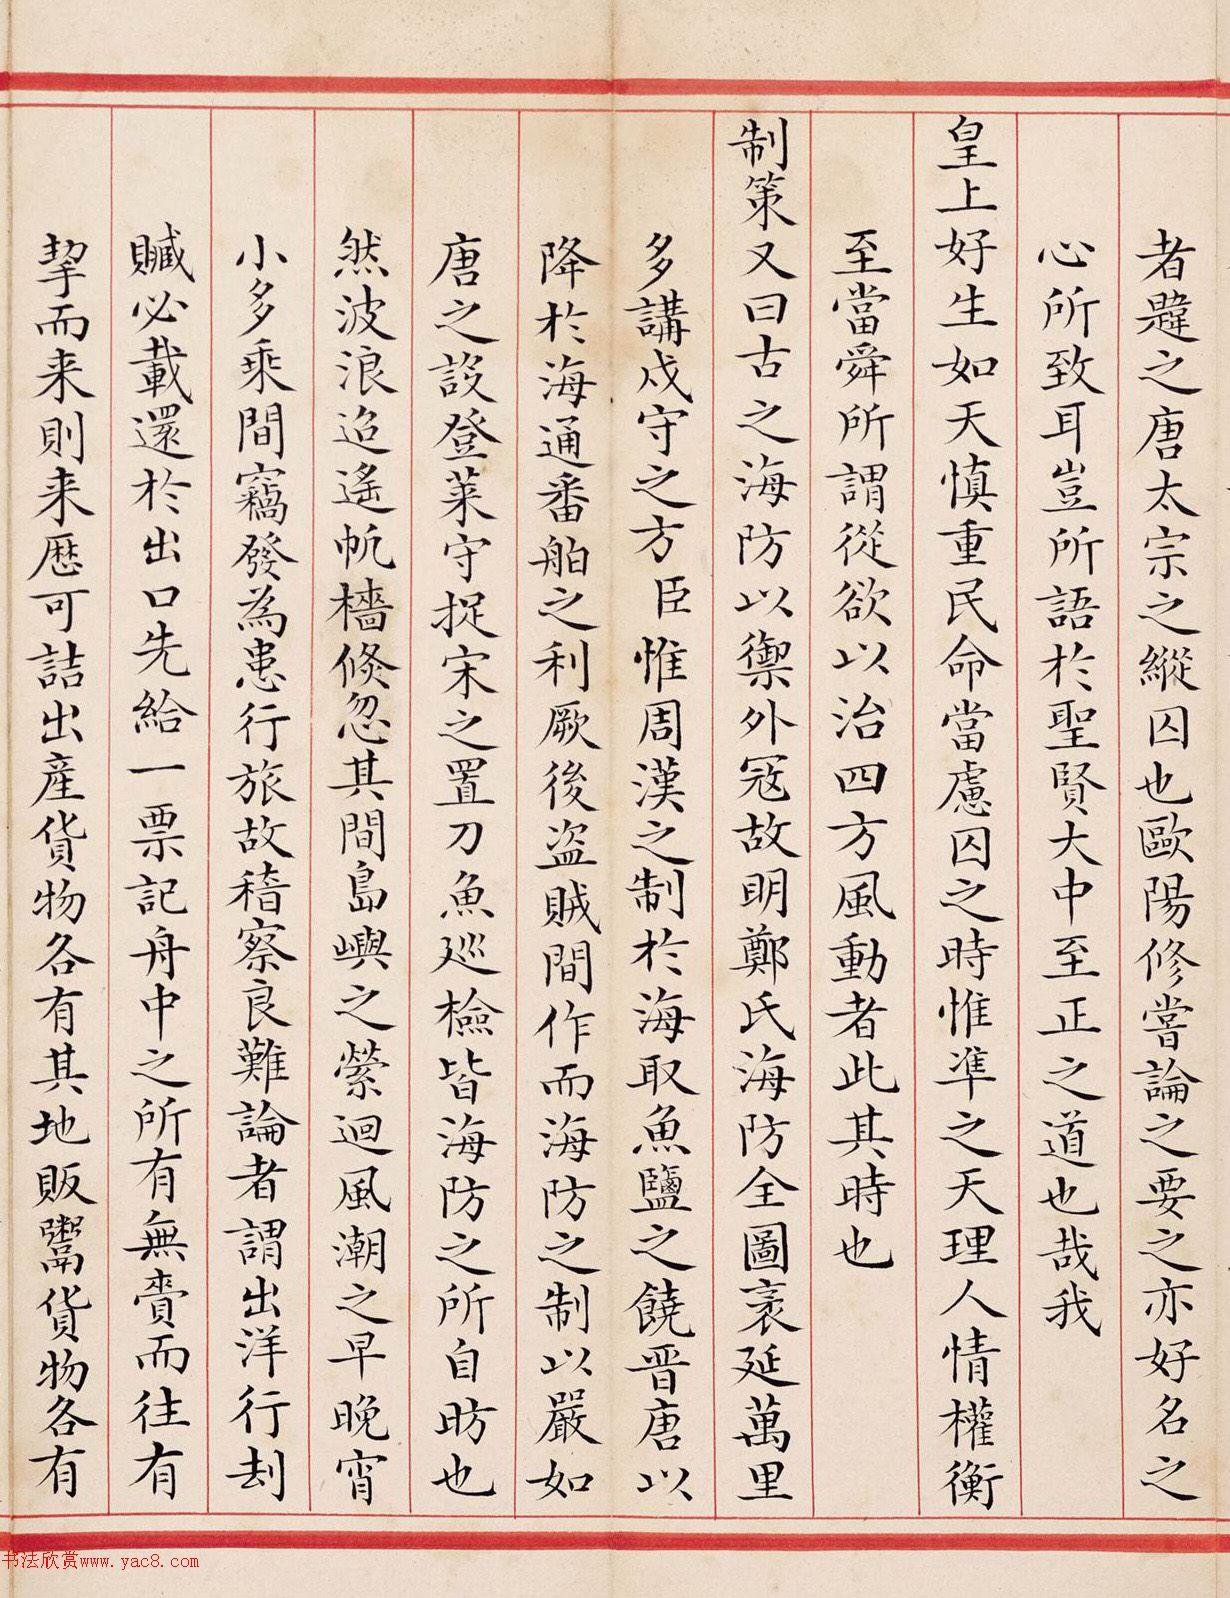 者韙之唐太宗之縱囚也歐陽修嘗論之要之亦好名之
心所致耳豈所語於聖賢大中至正之道也哉我
皇上好生如天慎重民命當慮囚之時惟準之天理人情權衡
至當舜所謂從欲以治四方風動者此其時也
制策又曰古之海防以禦外冦故明鄭氏海防全圖袤延萬里
多講戍守之方臣惟周漢之制於海取魚鹽之饒晋唐以
降於海通番舶之利厥後盗賊間作而海防之制以嚴如
唐之設登萊守捉宋之置刀魚巡檢皆海防之所自昉也
然波浪迢遙帆檣倏忽其間島嶼之縈迴風潮之早晚宵
小多乘間竊發為患行旅故稽察良難論者謂出洋行刦
贓必載還於出口先給一票記舟中之所有無賫而往有
挈而来則来歷可詰出産貨物各有其地販鬻貨物各有
书法欣赏www.yac8.com